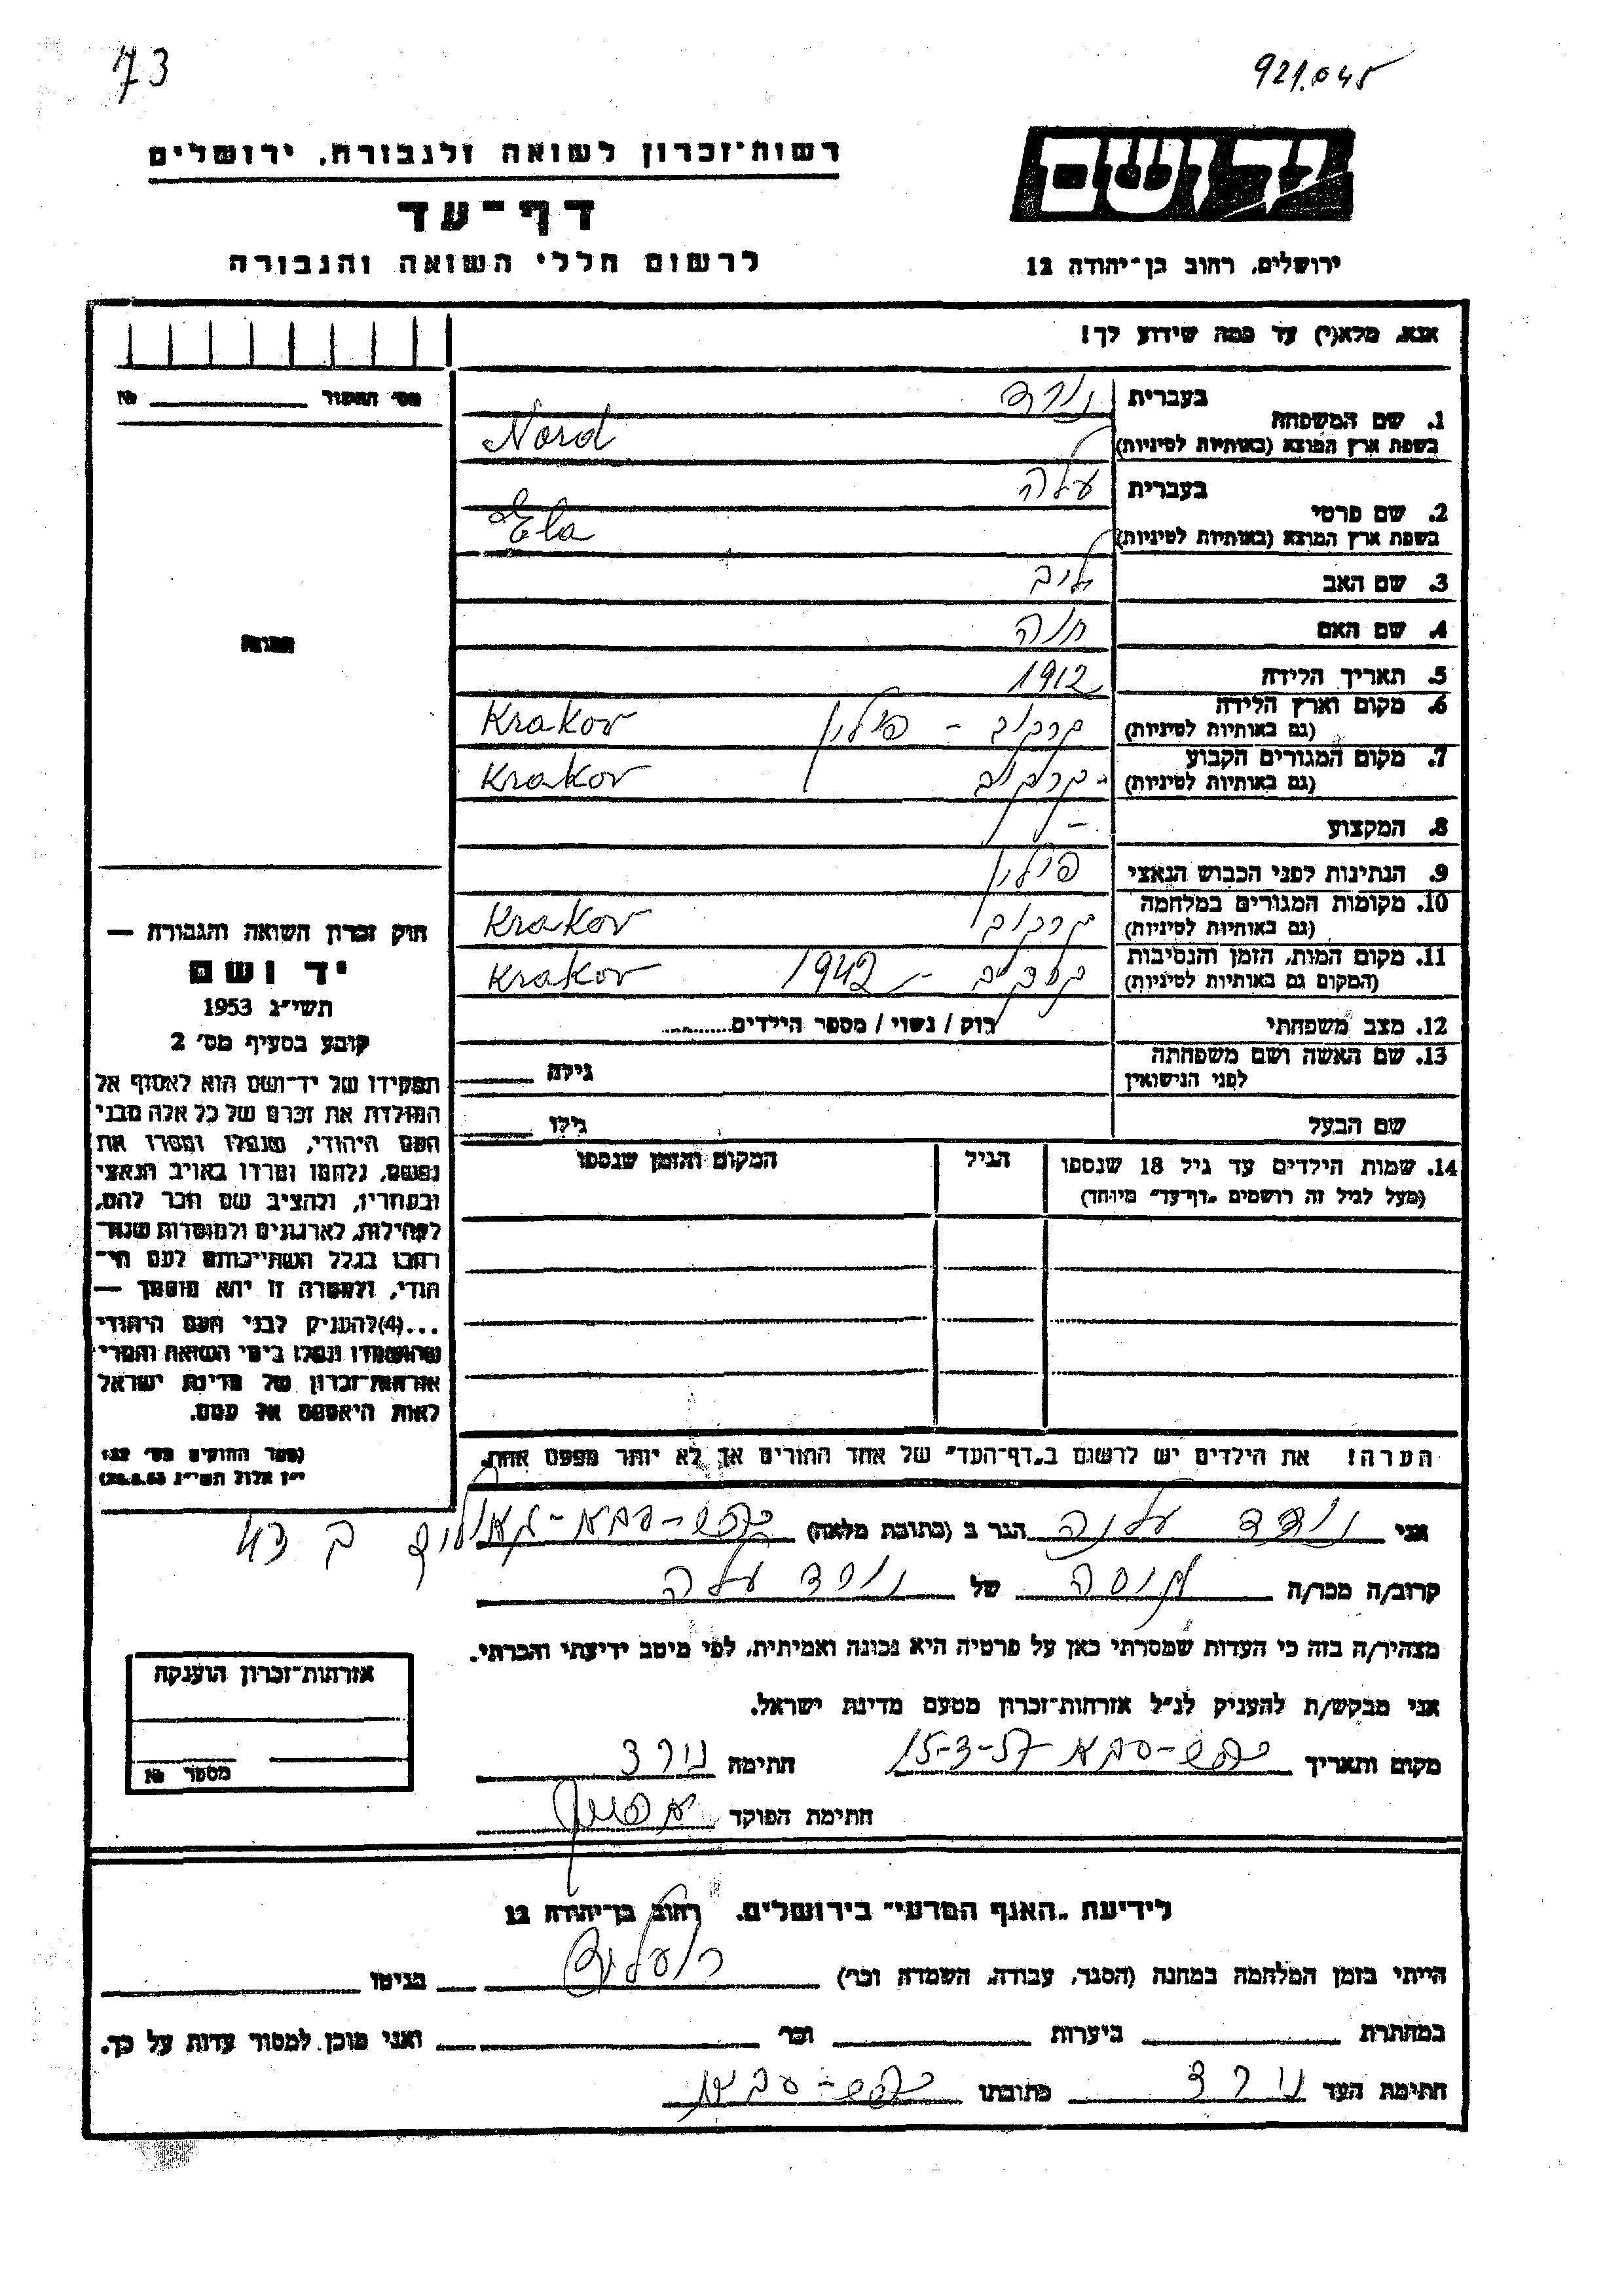 73
921.045
רשות־זכרון לשואה ולגבורה, ירושלים
יד ושם
דף־עד
לרשום חללי השואה והגבורה
ירושלים, רחוב בן־יהודה 12
אנא, מלא(י) עד כמה שידוע לך!
מס' התשור №
1. שם המשפחה בעברית נורד
בשפת ארץ המוצא (באותיות לטיניות) Nord
2. שם פרטי בעברית עלה
בשפת ארץ המוצא (באותיות לטיניות) Ela
3. שם האב ליב
4. שם האם חנה
5. תאריך הלידה 1912
6. מקום וארץ הלידה (גם באותיות לטיניות) קרקוב - פולין Krakov
7. מקום המגורים הקבוע (גם באותיות לטיניות) קרקוב Krakov
8. המקצוע –
9. הנתינות לפני הכבוש הנאצי פולין
10. מקומות המגורים במלחמה (גם באותיות לטיניות) קרקוב Krakov
11. מקום המות, הזמן והנסיבות (המקום גם באותיות לטיניות) קרקוב – 1942 Krakov
12. מצב משפחתי רוק / נשוי / מספר הילדים..........
13. שם האשה ושם משפחתה לפני הנישואין גילה
שם הבעל גילו
14. שמות הילדים עד גיל 18 שנספו הגיל המקום והזמן שנספו
(מעל לגיל זה רושמים „דף־עד" מיוחד)
הערה! את הילדים יש לרשום ב„דף־העד" של אחד ההורים אך לא יותר מפעם אחת.
תמונה
חוק זכרון השואה והגבורה —
יד ושם
תשי״ג 1953
קובע בסעיף מס' 2
תפקידו של יד־ושם הוא לאסוף אל
המולדת את זכרם של כל אלה מבני
העם היהודי, שנפלו ומסרו את
נפשם, נלחמו ומרדו באויב הנאצי
ובעוזריו, ולהציב שם וזכר להם,
לקהילות, לארגונים ולמוסדות שנח־
רבו בגלל השתייכותם לעם הי־
הודי, ולמטרה זו יהא מוסמך —
...(4)להעניק לבני העם היהודי
שהושמדו ונפלו בימי השואה והמרי
אזרחות־זכרון של מדינת ישראל
לאות היאספם אל עמם.
(ספר החוקים מס' 132
י״ז אלול תשי״ג 28.8.53)
אני נורד הגר ב (כתובת מלאה) כפר-סבא- ב 43
קרוב/ה מכר/ה של נורד עלה
מצהיר/ה בזה כי העדות שמסרתי כאן על פרטיה היא נכונה ואמיתית, לפי מיטב ידיעתי והכרתי.
אני מבקש/ת להעניק לנ״ל אזרחות־זכרון מטעם מדינת ישראל.
מקום ותאריך כפר-סבא 15-3-57 חתימה נורד
חתימת הפוקד
אזרחות־זכרון הוענקה
מספר №
לידיעת „האגף המדעי" בירושלים, רחוב בן־יהודה 12
הייתי בזמן המלחמה במחנה (הסגר, עבודה, השמדה וכו') בגיטו
במחתרת ביערות וכו' ואני מוכן למסור עדות על כך.
חתימת העד נורד כתובתו כפר-סבא